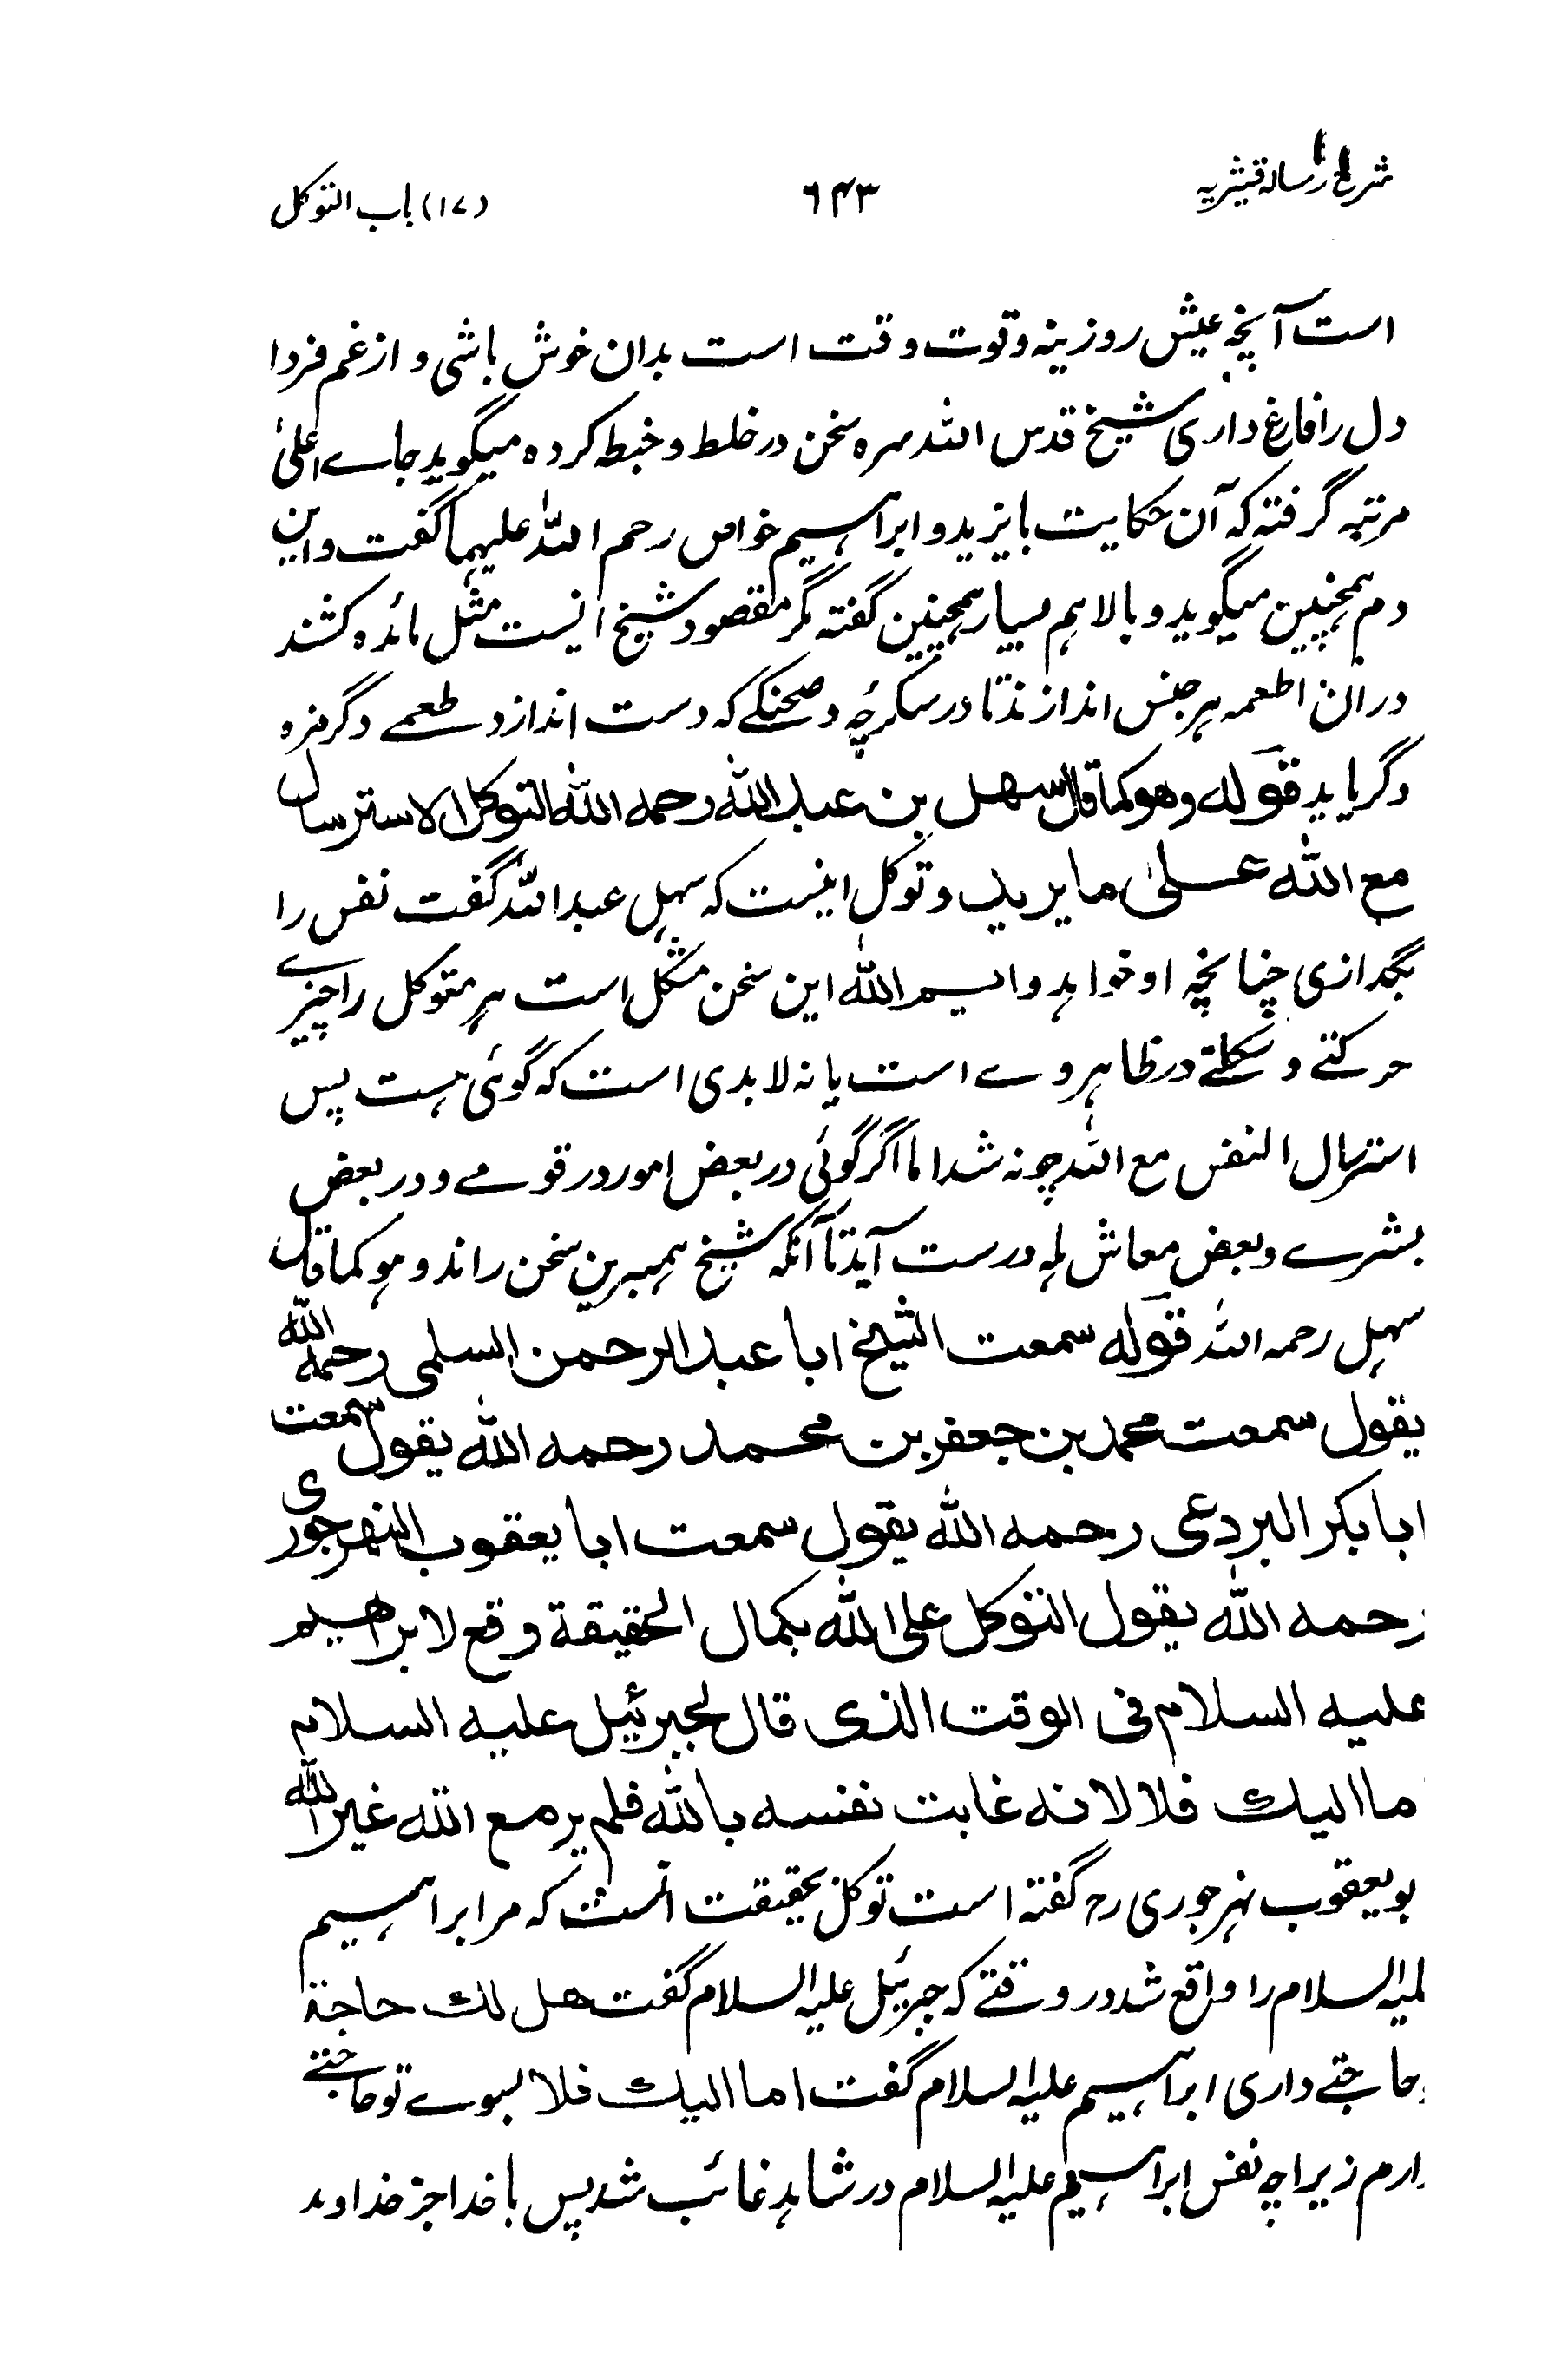 شرح رسالہ قشیریہ ۶۴۳ (۱۷) باب التوکل
است آنچہ عیش روزینہ وقوت وقت است بدان خوش باشی و از غم فردا
دل را فارغ داری شیخ قدس اللہ سرہ سخن در خلط و خبط کردہ میگوید جاے اعلیٰ
مرتبہ گرفتہ کہ آن حکایت بایزید و ابراہیم خواص رحم اللہ علیہما گفت و این
دم ہمچنین میگوید و بالا ہم بسیار ہمچنین گفتہ مگر مقصود شیخ انیست مثل مائدہ کشند
دران اطعمہ ہر جنس اندازند تا در سکرچۂ و صحنکے کہ دست اندازد طعمے دگر مزہ
دگر یابد قوله وهو كما قال سهل بن عبد الله رحمه الله التوكل الاسترسال
مع الله على ما يريد و توکل اینست کہ سہل عبداللہ گفت نفس را
بگذاری چنانچہ او خواہد و ایم اللہ این سخن مشکل است ہر متوکل را چیزے
حرکتے و سکنتے در ظاہر وے است یا نہ لابدی است کہ گوئی ہست پس
استرسال النفس مع اللہ چونہ شد اما اگر گوئی در بعض امور در قومے و در بعض
بشرے و بعض معاش بلہ درست آید تا آنکہ شیخ ہمبرین سخن راند و ہو کما قال
سہل رحمہ اللہ قوله سمعت الشيخ ابا عبد الرحمن السلمي رحمه الله
يقول سمعت محمد بن جعفر بن محمد رحمه الله يقول سمعت
ابا بكر البردعى رحمه الله يقول سمعت ابا يعقوب النهرجورى
رحمه الله يقول التوكل على الله بكمال الحقيقة وقع لابراهيم
عليه السلام فى الوقت الذى قال لجبرئيل عليه السلام
ما اليك فلا لانه غابت نفسه بالله فلم ير مع الله غير الله
بو یعقوب نہرجوری رح گفتہ است توکل بحقیقت آنست کہ مر ابراہیم
علیہ السلام را واقع شد در وقتے کہ جبرئیل علیہ السلام گفت هل لك حاجة
حاجتے داری ابراہیم علیہ السلام گفت اما اليك فلا بسوے تو حاجتے
دارم زیراچہ نفس ابراہیم علیہ السلام در شاہد غائب شد پس با خدا جز خداوند